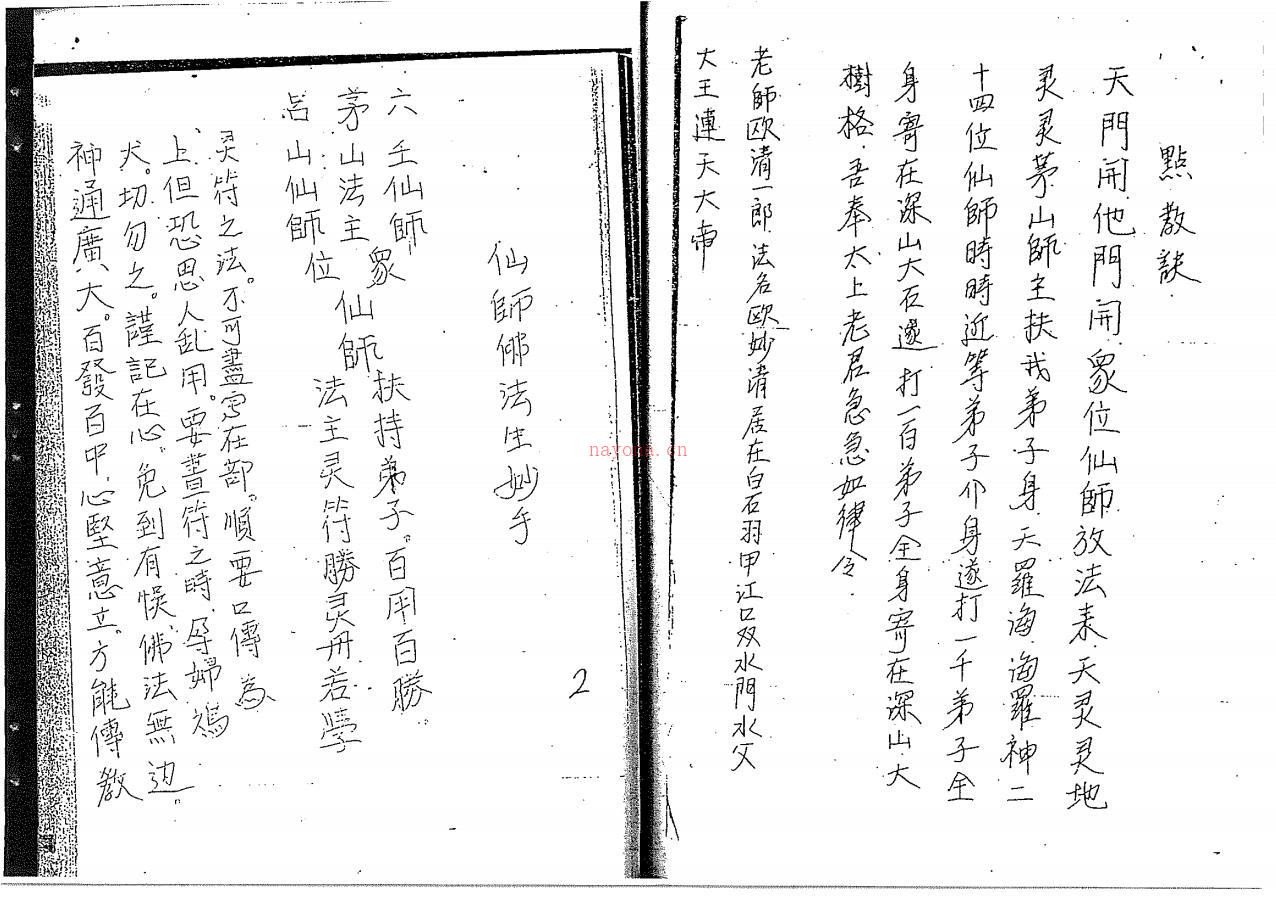 點教訣
天門開他門開眾位仙師放法來天灵灵地
灵灵茅山師主扶我弟子身天羅海海羅神二
十四位仙師時時近等弟子介身遂打一千弟子全
身寄在深山大石遂打一百弟子全身寄在深山大
樹格吾奉太上老君急急如律令
老師欧清一郎法名欧妙清居在白石羽甲江口双水門水父
大王連天大帝
仙師佛法生妙手
六壬仙師
茅山法主 眾仙師扶持弟子。百用百勝。
吕山仙師位 法主灵符勝灵丹若學
灵符之法。不可盡寫在部。順要口傳為
上但恐思人乱用。要畫符之時
犬。切勿之。謹記在心。免到有悞佛法無边。
神通廣大。百發百中。心堅意立。方能傳教
2
nayona.cn